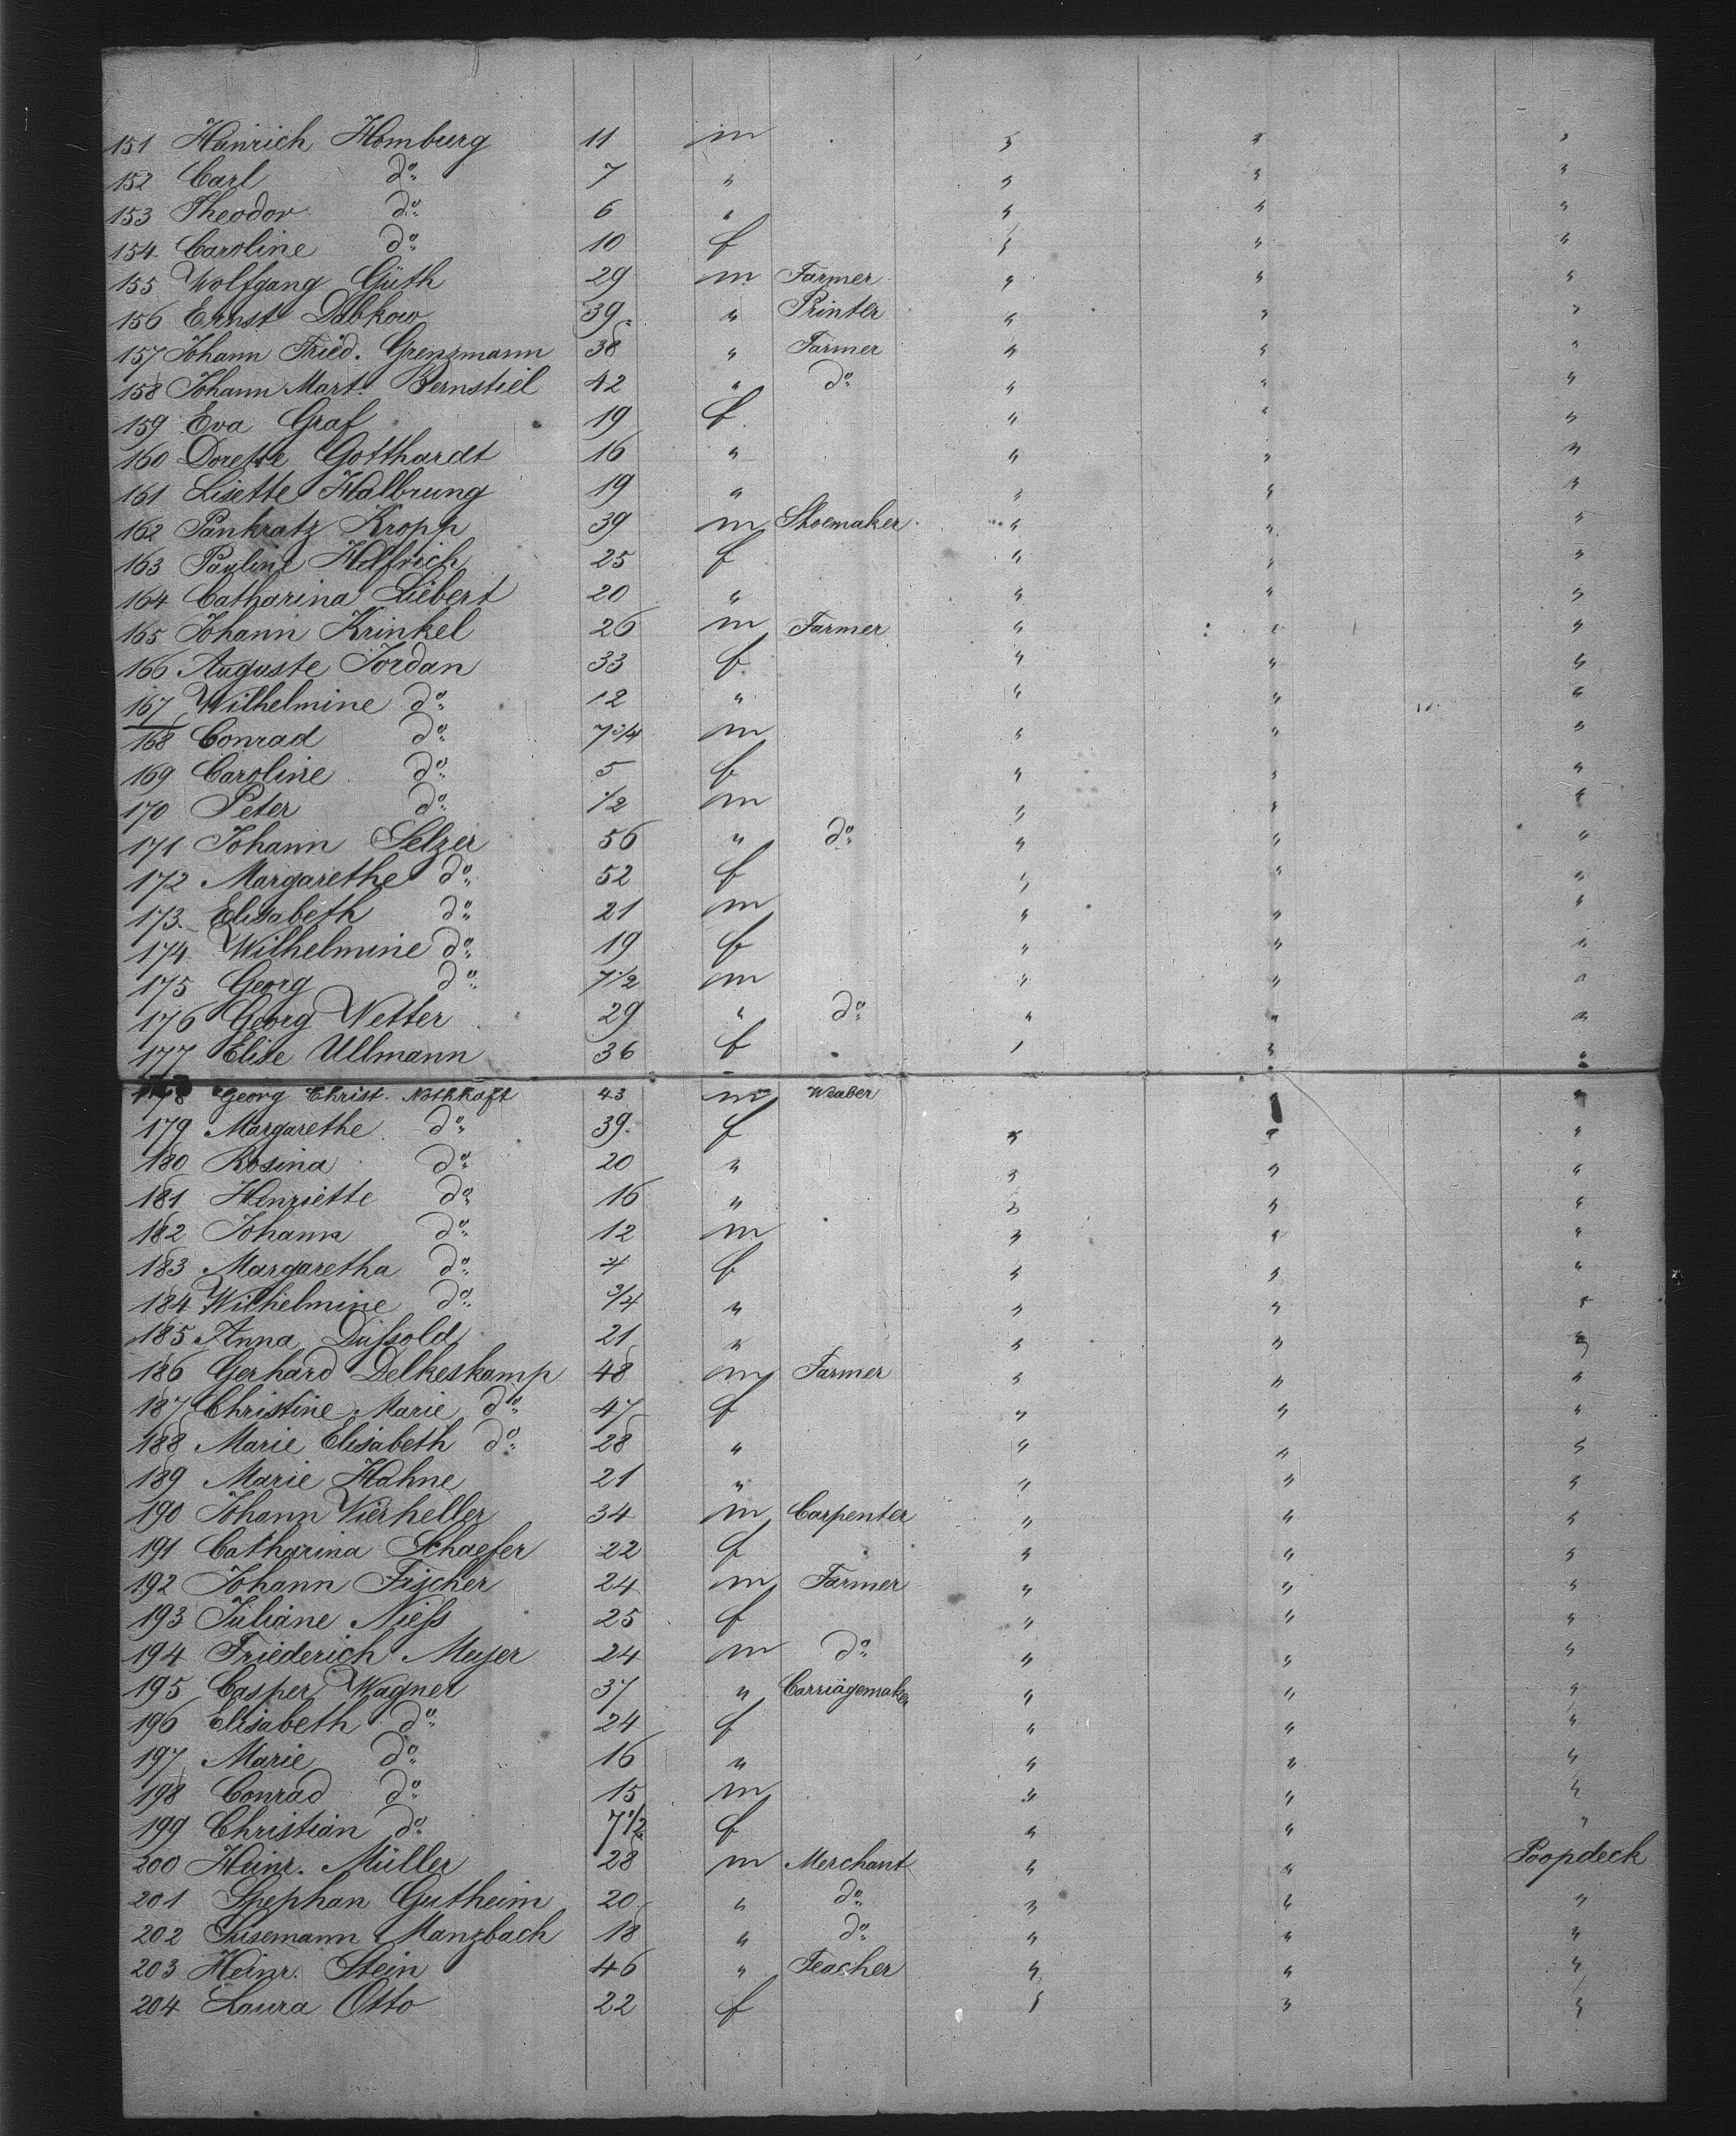 151 Heinrich Homburg 11 m " " "
152 Carl do 7 " " " "
153 Theodor do 6 " " " "
154 Caroline do 10 f " " "
155 Wolfgang Güth 29 m Farmer " " "
156 Ernst Dabkow 39 " Printer " " "
157 Johann Fried. Grenzmann 38 " Farmer " " "
158 Johann Mart. Bernstiel 42 " do " " "
159 Eva Graf 19 f " " "
160 Dorette Gotthardt 16 " " " "
161 Lisette Halbrung 19 " " " "
162 Pankratz Kropp 39 m Shoemaker " " "
163 Pauline Helfrich 25 f " " "
164 Catharina Liebert 20 " " " "
165 Johann Krinkel 26 m Farmer " " "
166 Auguste Jordan 33 f " " "
167 Wilhelmine do 12 " " " "
168 Conrad do 7 3/4 m " " "
169 Caroline do 5 f " " "
170 Peter do 1/2 m " " "
171 Johann Selzer 56 " do " " "
172 Margarethe do 52 f " " "
173 Elisabeth do 21 m " " "
174 Wilhelmine do 19 f " " "
175 Georg do 7 1/2 m " " "
176 Georg Vetter 29 " do " " "
177 Elise Ullmann 36 f " " "
178 Georg Christ. Nothhaft 43 m Weaber "
179 Margarethe do 39 f " " "
180 Rosina do 20 " " " "
181 Henriette do 16 " " " "
182 Johann do 12 m " " "
183 Margaretha do 4 f " " "
184 Wilhelmine do 3/4 " " " "
185 Anna Dußold 21 " " " "
186 Gerhard Delkeskamp 48 m Farmer " " "
187 Christine Marie do 47 f " " "
188 Marie Elisabeth do 28 " " " "
189 Marie Hahne 21 " " " "
190 Johann Vierheller 34 m Carpenter " " "
191 Catharina Schaefer 22 f " " "
192 Johann Fischer 24 m Farmer " " "
193 Juliane Nieß 25 f " " "
194 Friederich Meyer 24 m do " " "
195 Casper Wagner 37 " Carriagemaker " " "
196 Elisabeth do 24 f " " "
197 Marie do 16 " " " "
198 Conrad do 15 m " " "
199 Christian do 7 1/2 f " " "
200 Heinr. Müller 28 m Merchant " " Poopdeck
201 Stephan Gutheim 20 " do " " "
202 Susemann Manzbach 18 " do " " "
203 Heinr. Stein 46 " Teacher " " "
204 Laura Otto 22 f " " "